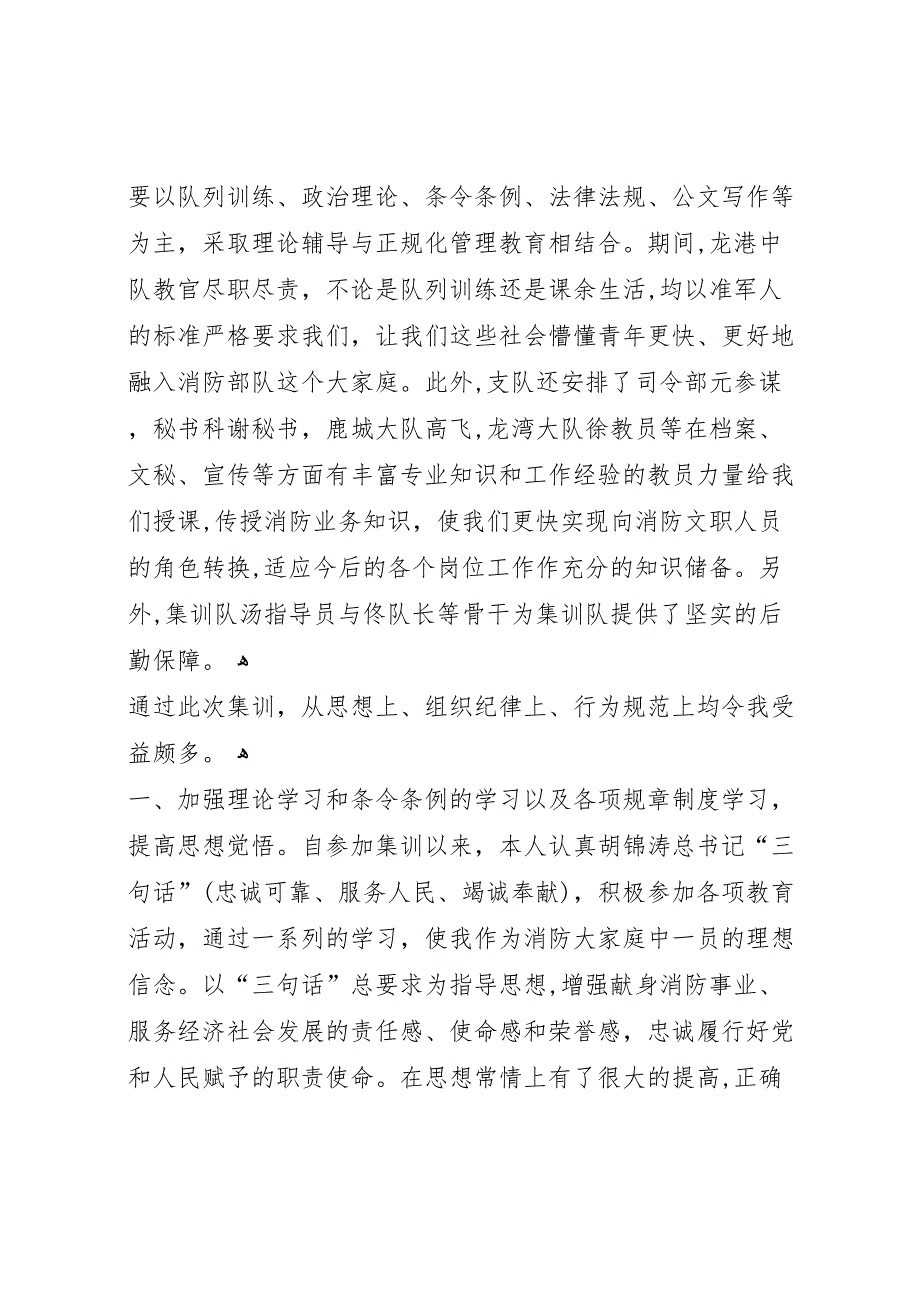 要以队列训练、政治理论、条令条例、法律法规、公文写作等
为主，采取理论辅导与正规化管理教育相结合。期间,龙港中
队教官尽职尽责，不论是队列训练还是课余生活,均以准军人
的标准严格要求我们，让我们这些社会懵懂青年更快、更好地
融入消防部队这个大家庭。此外,支队还安排了司令部元参谋
，秘书科谢秘书，鹿城大队高飞,龙湾大队徐教员等在档案、
文秘、宣传等方面有丰富专业知识和工作经验的教员力量给我
们授课,传授消防业务知识，使我们更快实现向消防文职人员
的角色转换,适应今后的各个岗位工作作充分的知识储备。另
外,集训队汤指导员与佟队长等骨干为集训队提供了坚实的后
勤保障。 ﻫ
通过此次集训，从思想上、组织纪律上、行为规范上均令我受
益颇多。 ﻫ
一、加强理论学习和条令条例的学习以及各项规章制度学习，
提高思想觉悟。自参加集训以来，本人认真胡锦涛总书记“三
句话”(忠诚可靠、服务人民、竭诚奉献)，积极参加各项教育
活动，通过一系列的学习，使我作为消防大家庭中一员的理想
信念。以“三句话”总要求为指导思想,增强献身消防事业、
服务经济社会发展的责任感、使命感和荣誉感，忠诚履行好党
和人民赋予的职责使命。在思想常情上有了很大的提高,正确